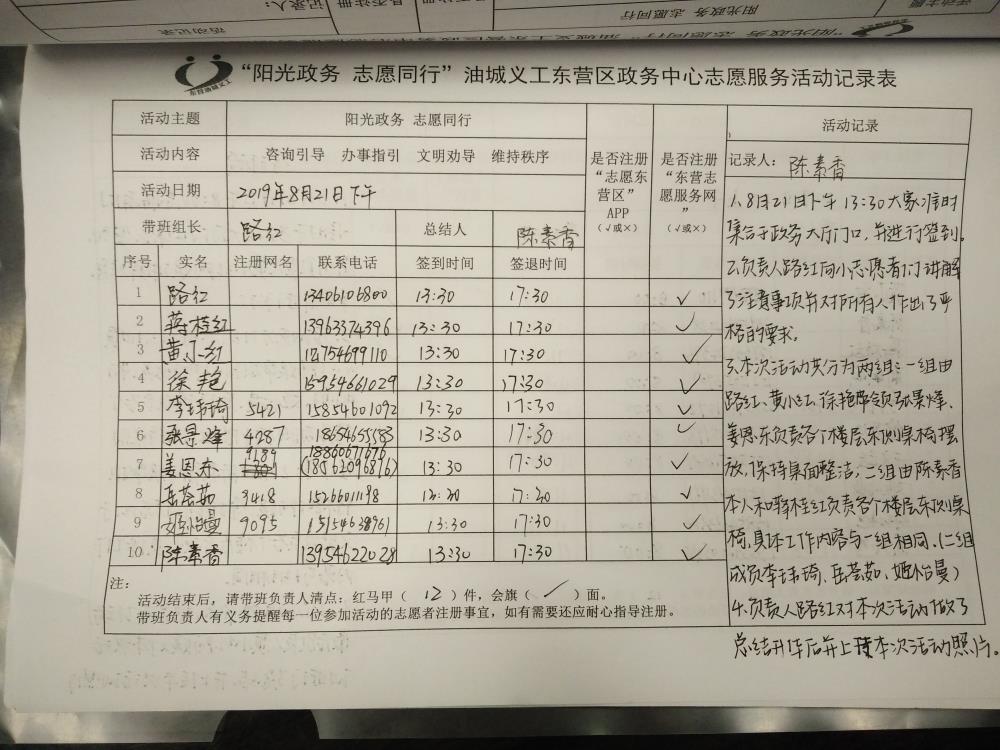 活动记录
记录人：
是否注册
阳光政务 志愿同行
活动主题
东营油城义工
“阳光政务 志愿同行”油城义工东营区政务中心志愿服务活动记录表
活动主题 阳光政务 志愿同行
活动内容 咨询引导 办事指引 文明劝导 维持秩序
活动日期 2019年8月21日下午
带班组长 路红 总结人 陈素香
是否注册
“志愿东
营区”
APP
（√或×）
是否注册
“东营志
愿服务网
”
（√或×）
序号 实名 注册网名 联系电话 签到时间 签退时间
1 路红 13406106800 13:30 17:30 ✓
2 蒋桂红 13963374396 13:30 17:30 ✓
3 黄小红 13:30 17:30 ✓
4 徐艳 15954661029 13:30 17:30 ✓
5 李玮琦 5421 15854601092 13:30 17:30 ✓
6 张景峰 4287 18654655583 13:30 17:30 ✓
7 姜恩东 9189 18860671676 (18562096876) 13:30 17:30 ✓
8 岳荟茹 9418 13:30 17:30 ✓
9 姬怡曼 9095 15154638961 13:30 17:30 ✓
10 陈素香 13954622028 13:30 17:30 ✓
注：
活动结束后，请带班负责人清点：红马甲（ 12 ）件，会旗（ ✓ ）面。
带班负责人有义务提醒每一位参加活动的志愿者注册事宜，如有需要还应耐心指导注册。
活动记录
记录人： 陈素香
1、8月21日下午 13:30大家准时
集合于政务大厅门口，并进行签到。
2、负责人路红向小志愿者们讲解
了注意事项并对所有人作出了严
格的要求。
3、本次活动共分为两组：一组由
路红、黄小红、徐艳带领张景峰、
姜恩东负责各个楼层东侧桌椅摆
放，保持桌面整洁，二组由陈素香
本人和蒋桂红负责各个楼层东侧桌
椅，具体工作内容与一组相同。（二组
成员李玮琦、岳荟茹、姬怡曼）
4、负责人路红对本次活动做了
总结升华后并上传本次活动照片。